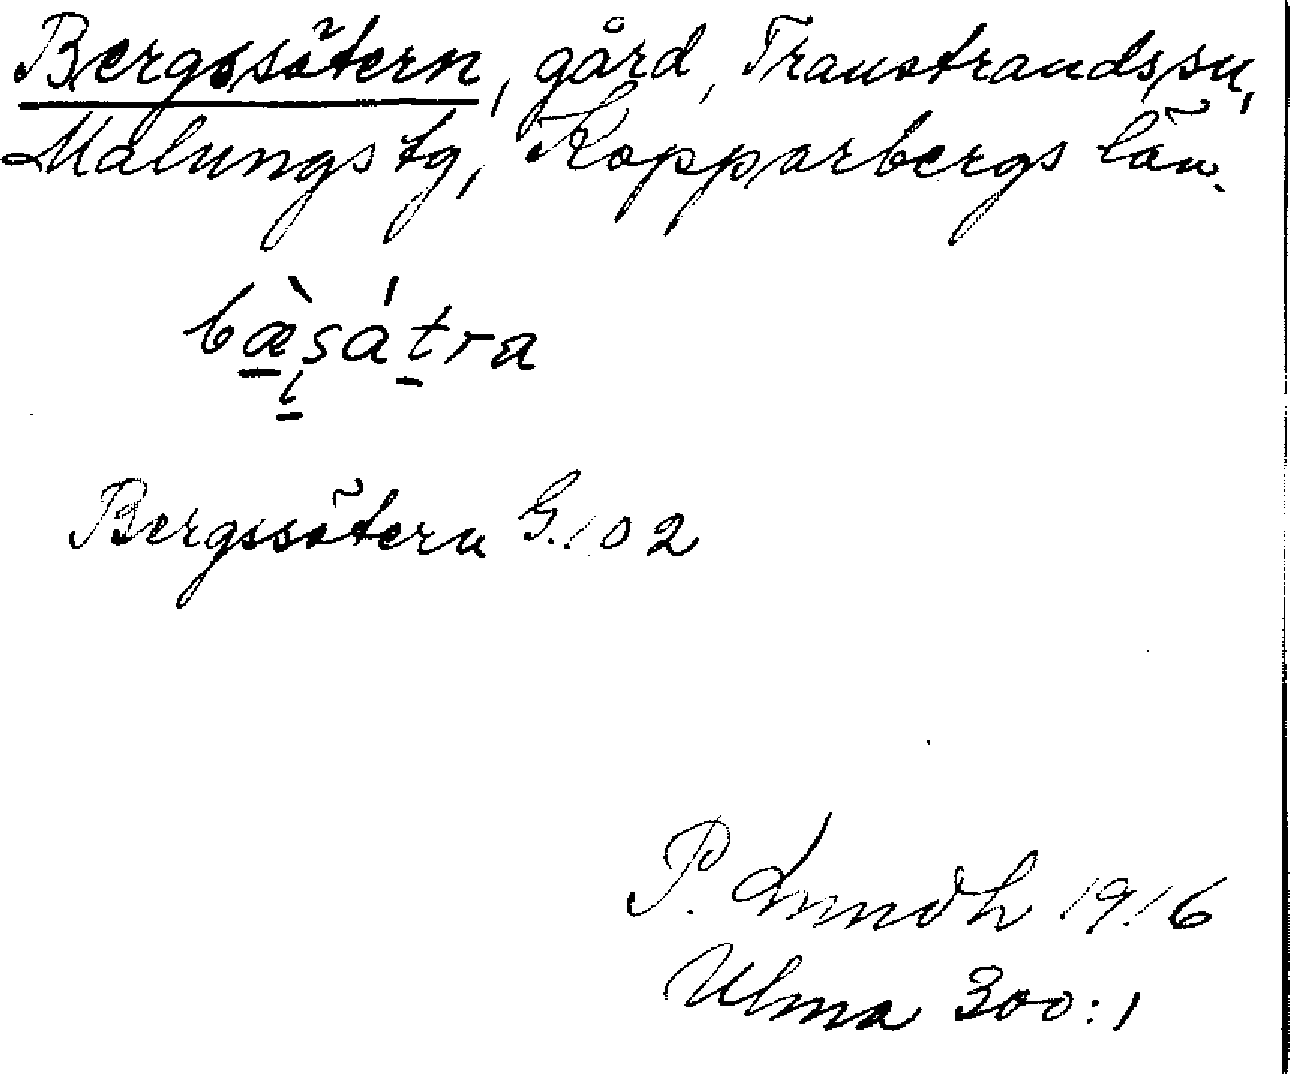 Bergssätern, gård, Transtrands sn,
Malungs tg, Kopparbergs län.
bæ̀sátra
Bergssätern G. 102
P. Lundh 1916
Ulma 300:1